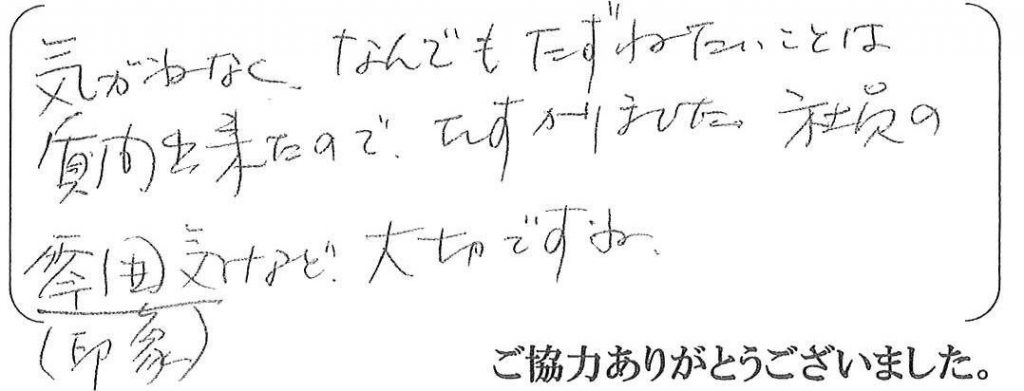 気がねなく、なんでもたずねたいことは
質問出来たので、たすかりました。社員の
雰囲気など、大切ですね。
(印象)
ご協力ありがとうございました。